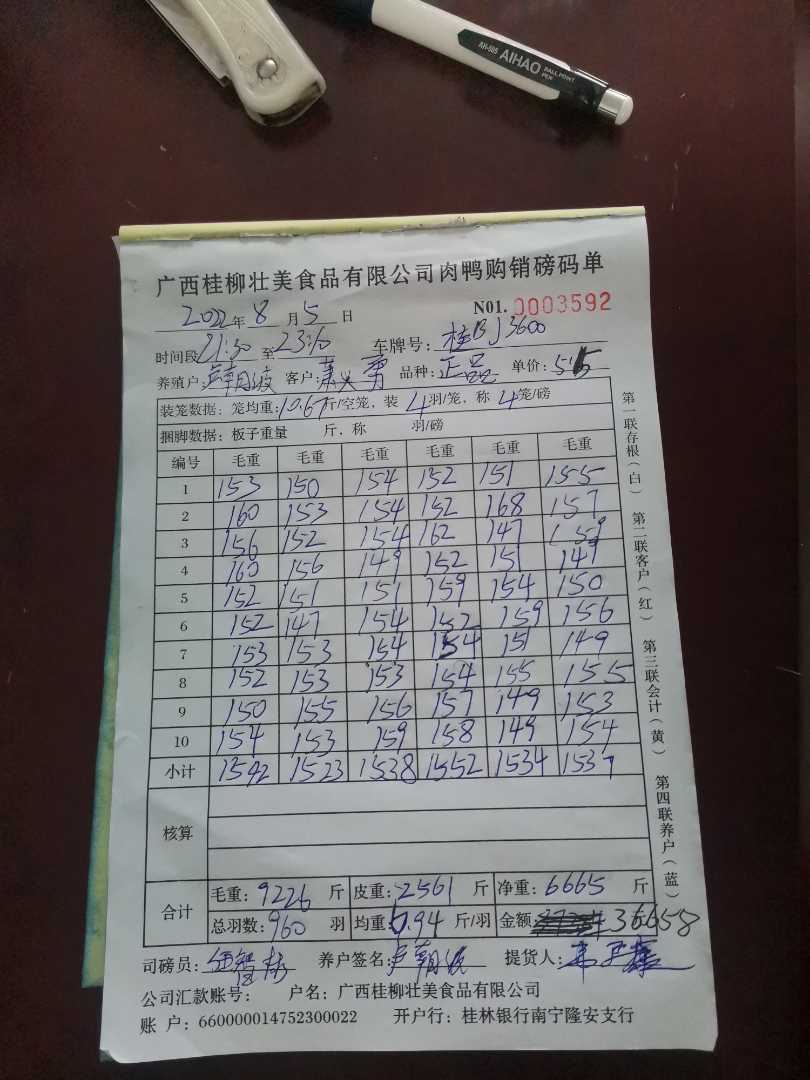 AH-505 AIHAO BALL POINT PEN
广西桂柳壮美食品有限公司肉鸭购销磅码单
2022年 8 月 5 日 N01. 0003592
时间段 21:30 至 23:10 车牌号: 桂BJ3600
养殖户: 客户: 品种: 正品 单价:
装笼数据: 笼均重: 10.67 斤/空笼, 装 4 羽/笼, 称 4 笼/磅
捆脚数据: 板子重量 斤, 称 羽/磅
编号 毛重 毛重 毛重 毛重 毛重 毛重
1 153 150 154 152 151 155
2 160 153 154 152 168 157
3 156 152 154 162 147 159
4 160 156 149 152 151 149
5 152 151 151 159 154 150
6 152 147 154 152 159 156
7 153 153 154 154 151 149
8 152 153 153 154 155 155
9 150 155 156 157 149 153
10 154 153 159 158 149 154
小计 1542 1523 1538 1552 1534 1537
核算
合计 毛重: 9226 斤 皮重: 2561 斤 净重: 6665 斤
总羽数: 960 羽 均重: 6.94 斤/羽 金额: 36658
司磅员: 养户签名: 提货人:
公司汇款账号: 户名: 广西桂柳壮美食品有限公司
账 户: 660000014752300022 开户行: 桂林银行南宁隆安支行
第一联存根(白) 第二联客户(红) 第三联会计(黄) 第四联养户(蓝)